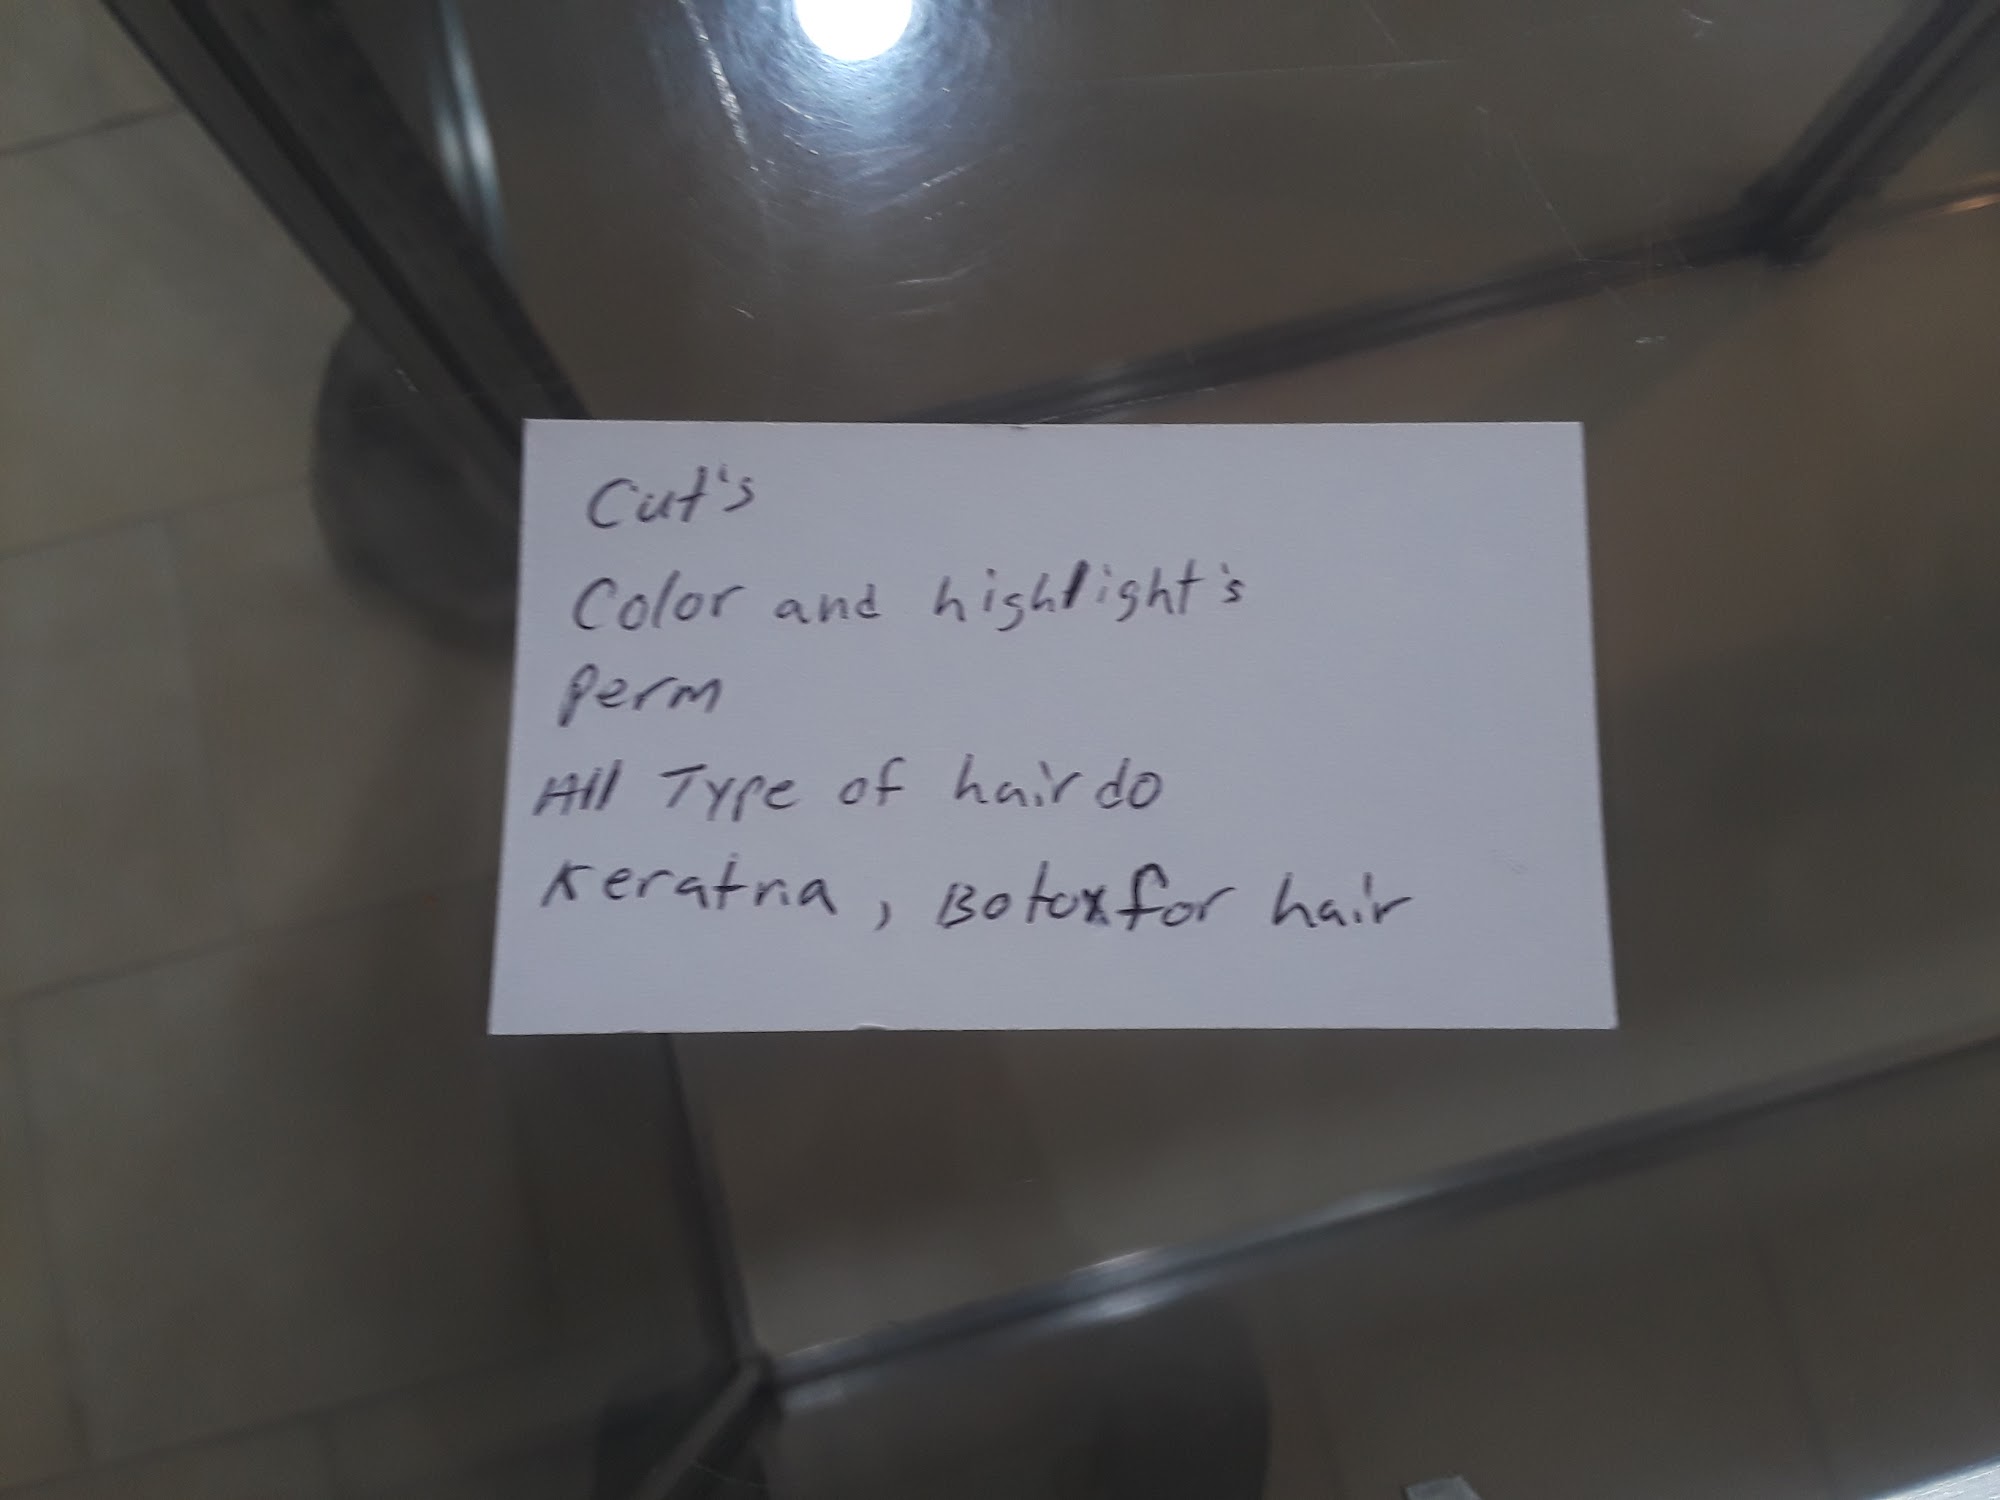 Cut's
Color and highlight's
Perm
All Type of hair do
Keratina, Botox for hair